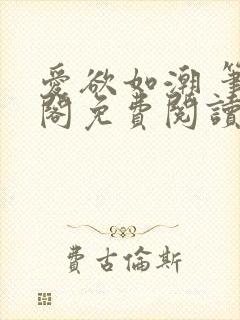 愛欲如潮 筆
閣免費閱讀
費古倫斯